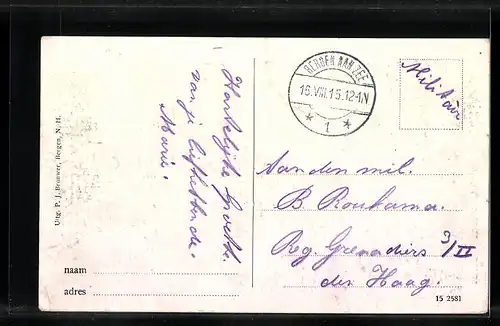 Uitg. P. J. Brouwer, Bergen, N. H.
Hartelijke groeten
van je liefhebbende
Marie.
naam
adres
BERGEN AAN ZEE
16.VIII.15.12-1N
* 1 *
Militair
Aan den mil.
B
Reg. Grenadiers 3/II
den Haag.
15 2581